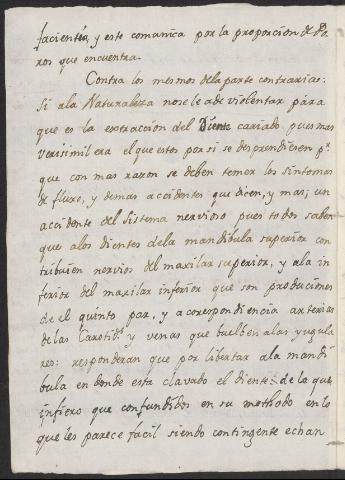 facientes, y este comunica por la proporcion de Po-
ros que encuentra.
Contra los mesmos dela parte contraria:
Si ala Naturaleza nosele ade violentar para
que es la extraccion del Diente cariado pues mas
verisimil era el que estos por si se desprendiesen p.r
que con mas razon se deben temer los sintomas
de fluxo, y demas accidentes que dicen, y mas; un
accidente del sistema nervioso pues todos saben
que alos dientes dela mandibula superior con
tribuien nervios del maxilar superior, y ala in
ferior del maxilar inferior que son produciones
de el quinto par, y a correspondiencia arterias
de las Carotid.s y venas que buelben alas yugula
res: responderan que por libertar ala mandi
bula en donde esta clavado el diente: de lo que
infiero que confundidos en su methodo en lo
que les parece facil siendo contingente echan